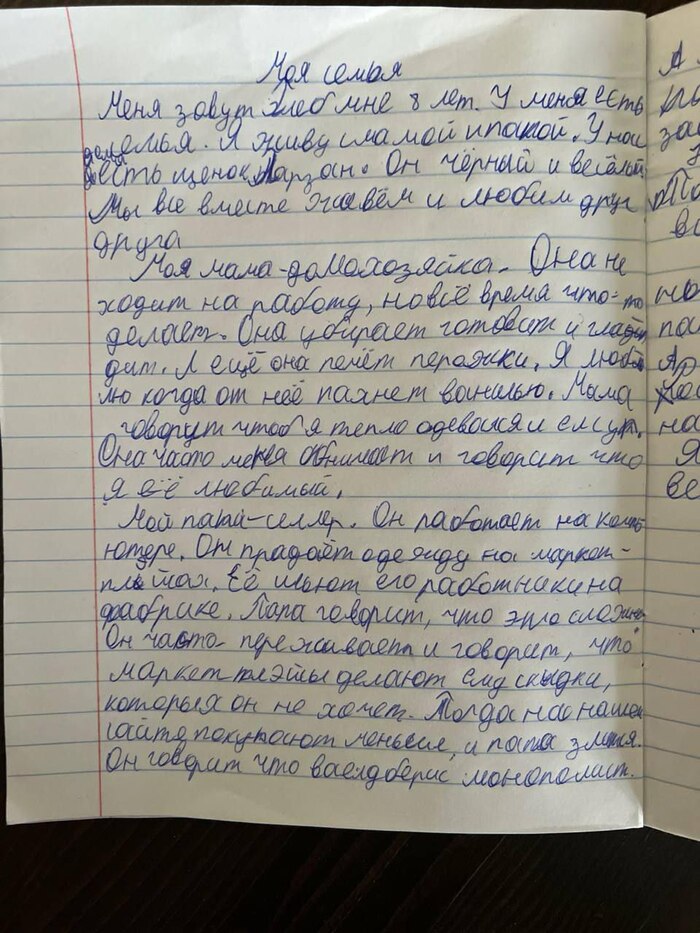 Моя семья
Меня зовут Глеб мне 8 лет. У меня есть
семья. Я живу с мамой и папой. У нас
есть щенок Тарзан. Он чёрный и весёлый
Мы все вместе живём и любим друг
друга
Моя мама-домохозяйка. Она не
ходит на работу, но всё время что-то
делает. Она убирает готовит и гла
дит. А ещё она печёт перажки. Я люб
лю когда от неё пахнет ванилью. Мама
говорит чтоб я тепло одевался и ел суп.
Она часто меня обнимает и говорит что
я её любимый.
Мой папа-селлер. Он работает на комп
ютере. Он прадаёт одежду на маркет-
плэйсах. Её шьют его работники на
фабрике. Папа говорит, что это сложно
Он часто переживает и говорит, что
маркетплэйсы делают ему скидки,
которых он не хочет. Тогда на нашем
сайте покупают меньше, и папа злится.
Он говорит что ваелдберис монополист.
А
за
вс
на
Я
ве